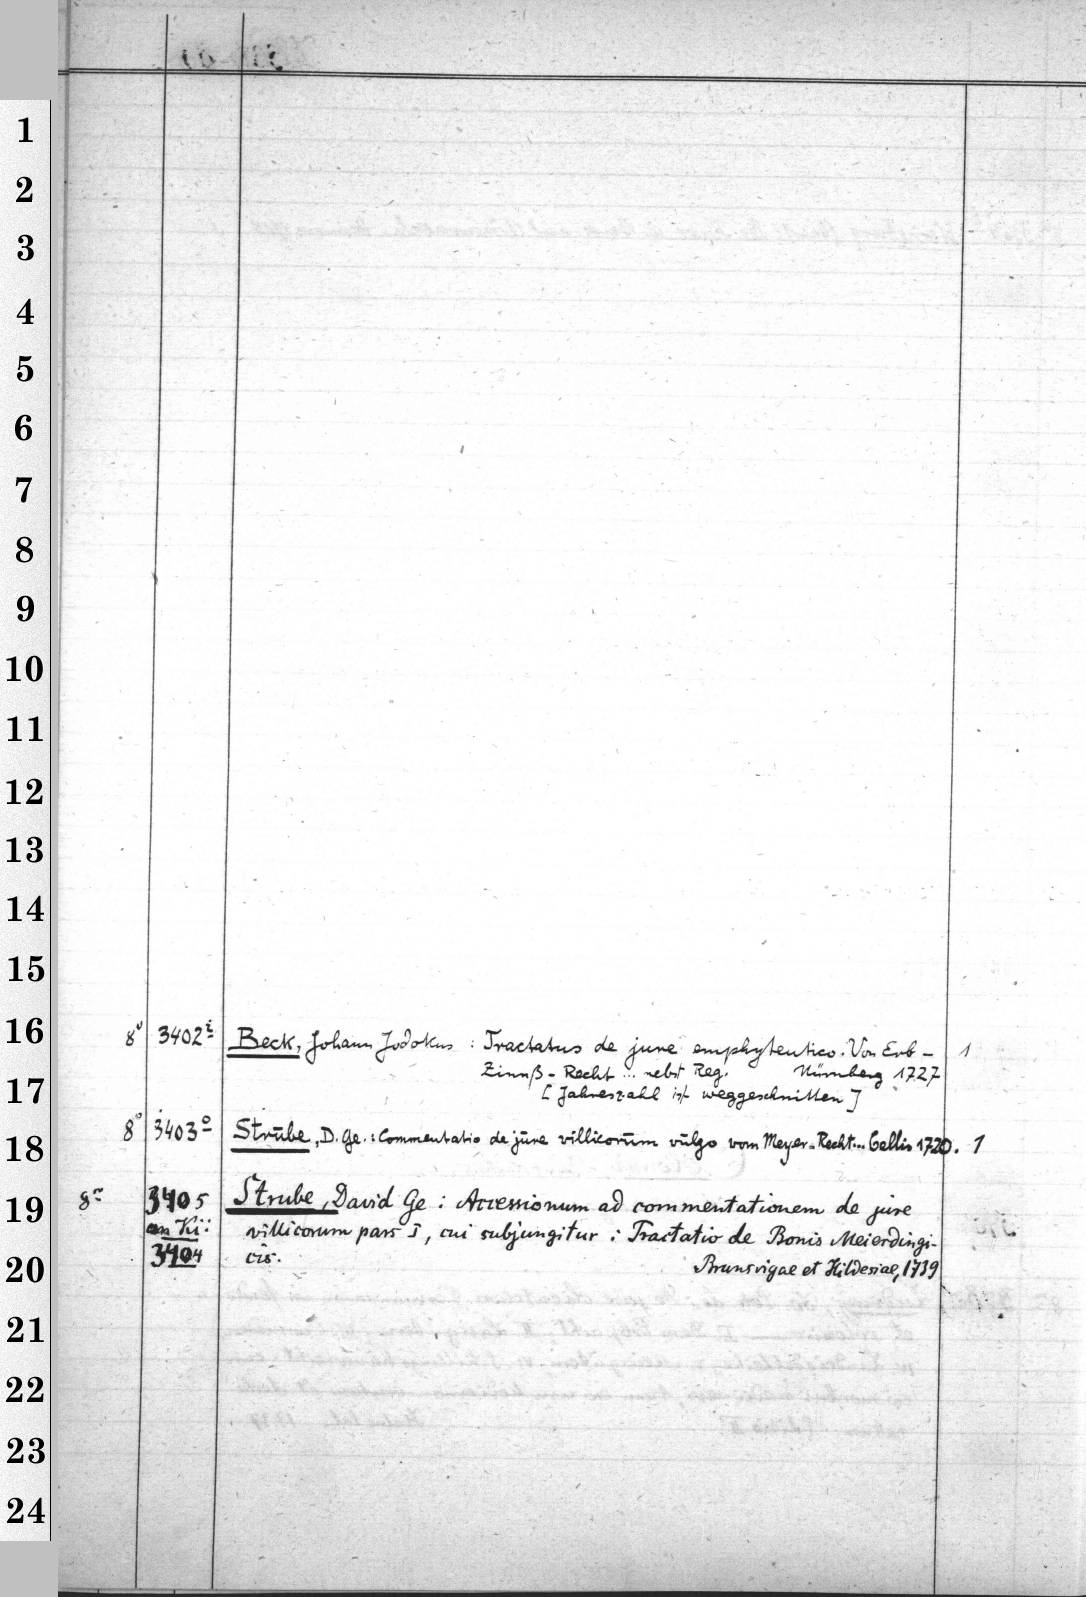 1
2
3
4
5
6
7
8
9
10
11
12
13
14
15
16
17
18
19
20
21
22
23
24
8° 3402 Beck, Johann Jodokus : Tractatus de jure emphyteutico. Von Erb- 1
Zinnß-Recht ... nebst Reg. Nürnberg 1727
[Jahreszahl ist weggeschnitten]
8° 3403° Strūbe, D. Ge.: Commentatio de jūre villicorūm vūlgo vom Meyer-Recht... Cellis 1720. 1
8° 3405 Strube, David Ge : Accessionum ad commentationem de jure
an Kü: villicorum pars I, cui subjungitur : Tractatio de Bonis Meierdingi-
3404 cis. Brunsvigae et Hildesiae, 1739